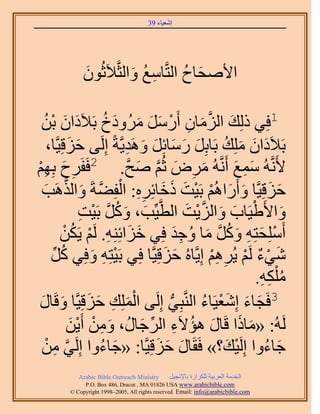 إشعياء 39
الأَصحَاحُ التَّاسِعُ وَالثَّلاَثُونَ
1فِي ذلِكَ الزَّمَانِ أَرْسَلَ مَرُودَخُ بَلاَدَانَ بْنُ
بَلاَدَانَ مَلِكُ بَابِلَ رَسَائِلَ وَهَدِيَّةً إِلَى حَزَقِيَّا،
لأَنَّهُ سَمِعَ أَنَّهُ مَرِضَ ثُمَّ صَحَّ. 2فَفَرِحَ بِهِمْ
حَزَقِيَّا وَأَرَاهُمْ بَيْتَ ذَخَائِرِهِ: الْفِضَّةَ وَالذَّهَبَ
وَالأَطْيَابَ وَالزَّيْتَ الطَّيِّبَ، وَكُلَّ بَيْتِ
أَسْلِحَتِهِ وَكُلَّ مَا وُجِدَ فِي خَزَائِنِهِ. لَمْ يَكُنْ
شَيْءٌ لَمْ يُرِهِمْ إِيَّاهُ حَزَقِيَّا فِي بَيْتِهِ وَفِي كُلِّ
مُلْكِهِ.
3فَجَاءَ إِشَعْيَاءُ النَّبِيُّ إِلَى الْمَلِكِ حَزَقِيَّا وَقَالَ
لَهُ: «مَاذَا قَالَ هؤُلاَءِ الرِّجَالُ، وَمِنْ أَيْنَ
جَاءُوا إِلَيْكَ؟» فَقَالَ حَزَقِيَّا: «جَاءُوا إِلَيَّ مِنْ
الخدمة العربية للكرازة بالإنجيل Arabic Bible Outreach Ministry
P.O. Box 486, Dracut , MA 01826 USA www.arabicbible.com
© Copyright 1998–2005, All rights reserved. Email: info@arabicbible.com